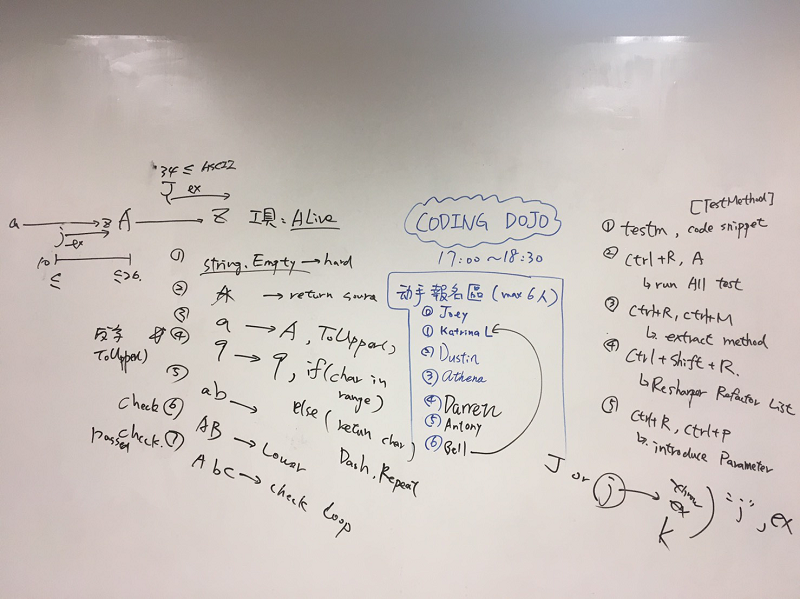 34 ≤ ASCII
J ex
a → z A → Z
j ex
≤
工具: ALive
① string.Empty → hard
② A → return
③ a → A, ToUpper()
④
ToUpper()
9 → 9, if(char in range)
⑤ ab → else(return char)
check ⑥ AB → Lower
Dash, Repeat
check. ⑦ Abc → check loop
CODING DOJO
17:00 ~ 18:30
动手報名區 (max 6人)
⓪ Joey
① Katrina L
② Dustin
③ Athena
④ Darren
⑤ Antony
⑥ Bell
[TestMethod]
① testm, code snippet
② Ctrl+R, A
↳ run All test
③ Ctrl+R, Ctrl+M
↳ extract method
④ Ctrl+Shift+R.
↳ Resharper Refactor List
⑤ Ctrl+R, Ctrl+P
↳ introduce Parameter
J or j → ex ) "j", ex
k